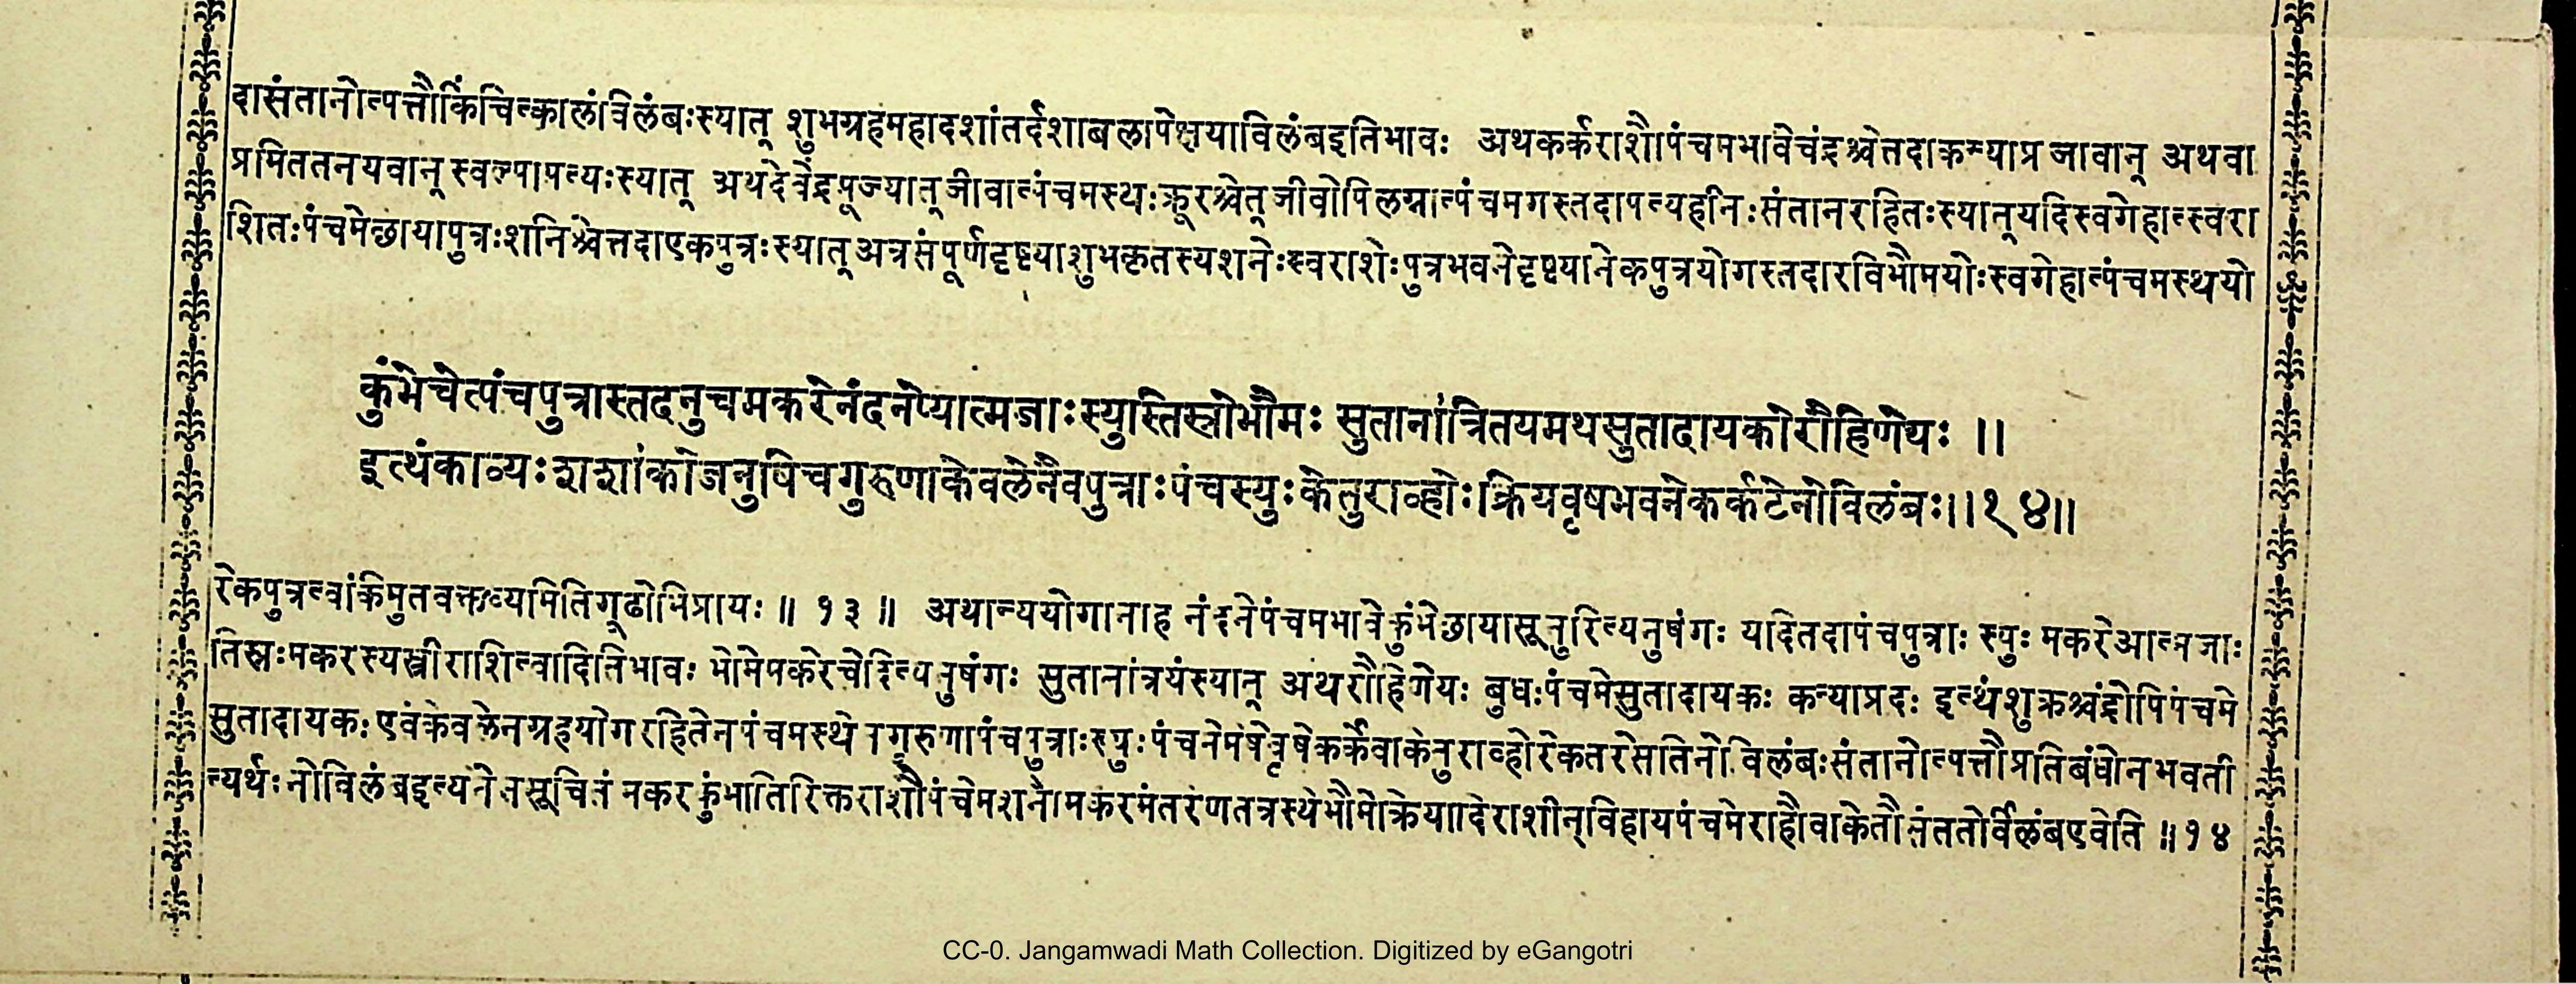 दासंतानोत्पत्तौकिंचित्कालंविलंबःस्यात् शुभग्रहमहादशांतर्दशाबलापेक्षयाविलंबइतिभावः अथकर्कराशौपंचमभावेचंद्रश्चेत्तदाकन्याप्रजावान् अथवा
प्रमिततनयवान् स्वल्पापत्यःस्यात् अथदेवेंद्रपूज्यात् जीवात्पंचमस्थःक्रूरश्चेत् जीवोपिलग्नात्पंचमगस्तदापत्यहीनःसंतानरहितःस्यात् यदिस्वगेहात्स्वरा
शितःपंचमेछायापुत्रःशनिश्चेत्तदाएकपुत्रःस्यात् अत्रसंपूर्णदृष्ट्याशुभकृतस्यशनेःस्वराशेःपुत्रभवनेदृष्ट्यानेकपुत्रयोगस्तदारविभौमयोःस्वगेहात्पंचमस्थयो
कुंभेचेत्पंचपुत्रास्तदनुचमकरेनंदनेप्यात्मजाःस्युस्तिस्रोभौमः सुतानांत्रितयमथसुतादायकोरौहिणेयः ।।
इत्थंकाव्यःशशांकोजनुषिचगुरुणाकेवलेनैवपुत्राःपंचस्युःकेतुराव्होःक्रियवृषभवनेकर्कटेनोविलंबः।।१४॥
रेकपुत्रत्वांकिमुतवक्तव्यमितिगूढोभिप्रायः ॥ १३ ॥ अथान्ययोगानाह नंदनेपंचमभावेकुंभेछायासूनुरित्यनुषंगः यदितदापंचपुत्राः स्युः मकरेआत्मजाः
तिस्रःमकरस्यस्त्रीराशित्वादितिभावः भोमेमकरेचेदित्यनुषंगः सुतानांत्रयंस्यात् अथरौहिणेयः बुधःपंचमेसुतादायकः कन्याप्रदः इत्थंशुक्रश्चंद्रोपिपंचमे
सुतादायकः एवंकेवलेनग्रहयोगरहितेनपंचमस्थे गुरुणापंचपुत्राःस्युःपंचमेमेषेवृषेकर्केवाकेतुराव्होरेकतरेसतिनोविलंबःसंतानोत्पत्तौप्रतिबंधोनभवती
त्यर्थः नोविलंबइत्यनेनसूचितं मकरकुंभातिरिक्तराशौपंचेमशनौमकरमंतरेणतत्रस्थेभौमेक्रियादिराशीन्विहायपंचमेराहौवाकेतौ संततोर्विलंबएवेति ॥ १४
CC-0. Jangamwadi Math Collection. Digitized by eGangotri